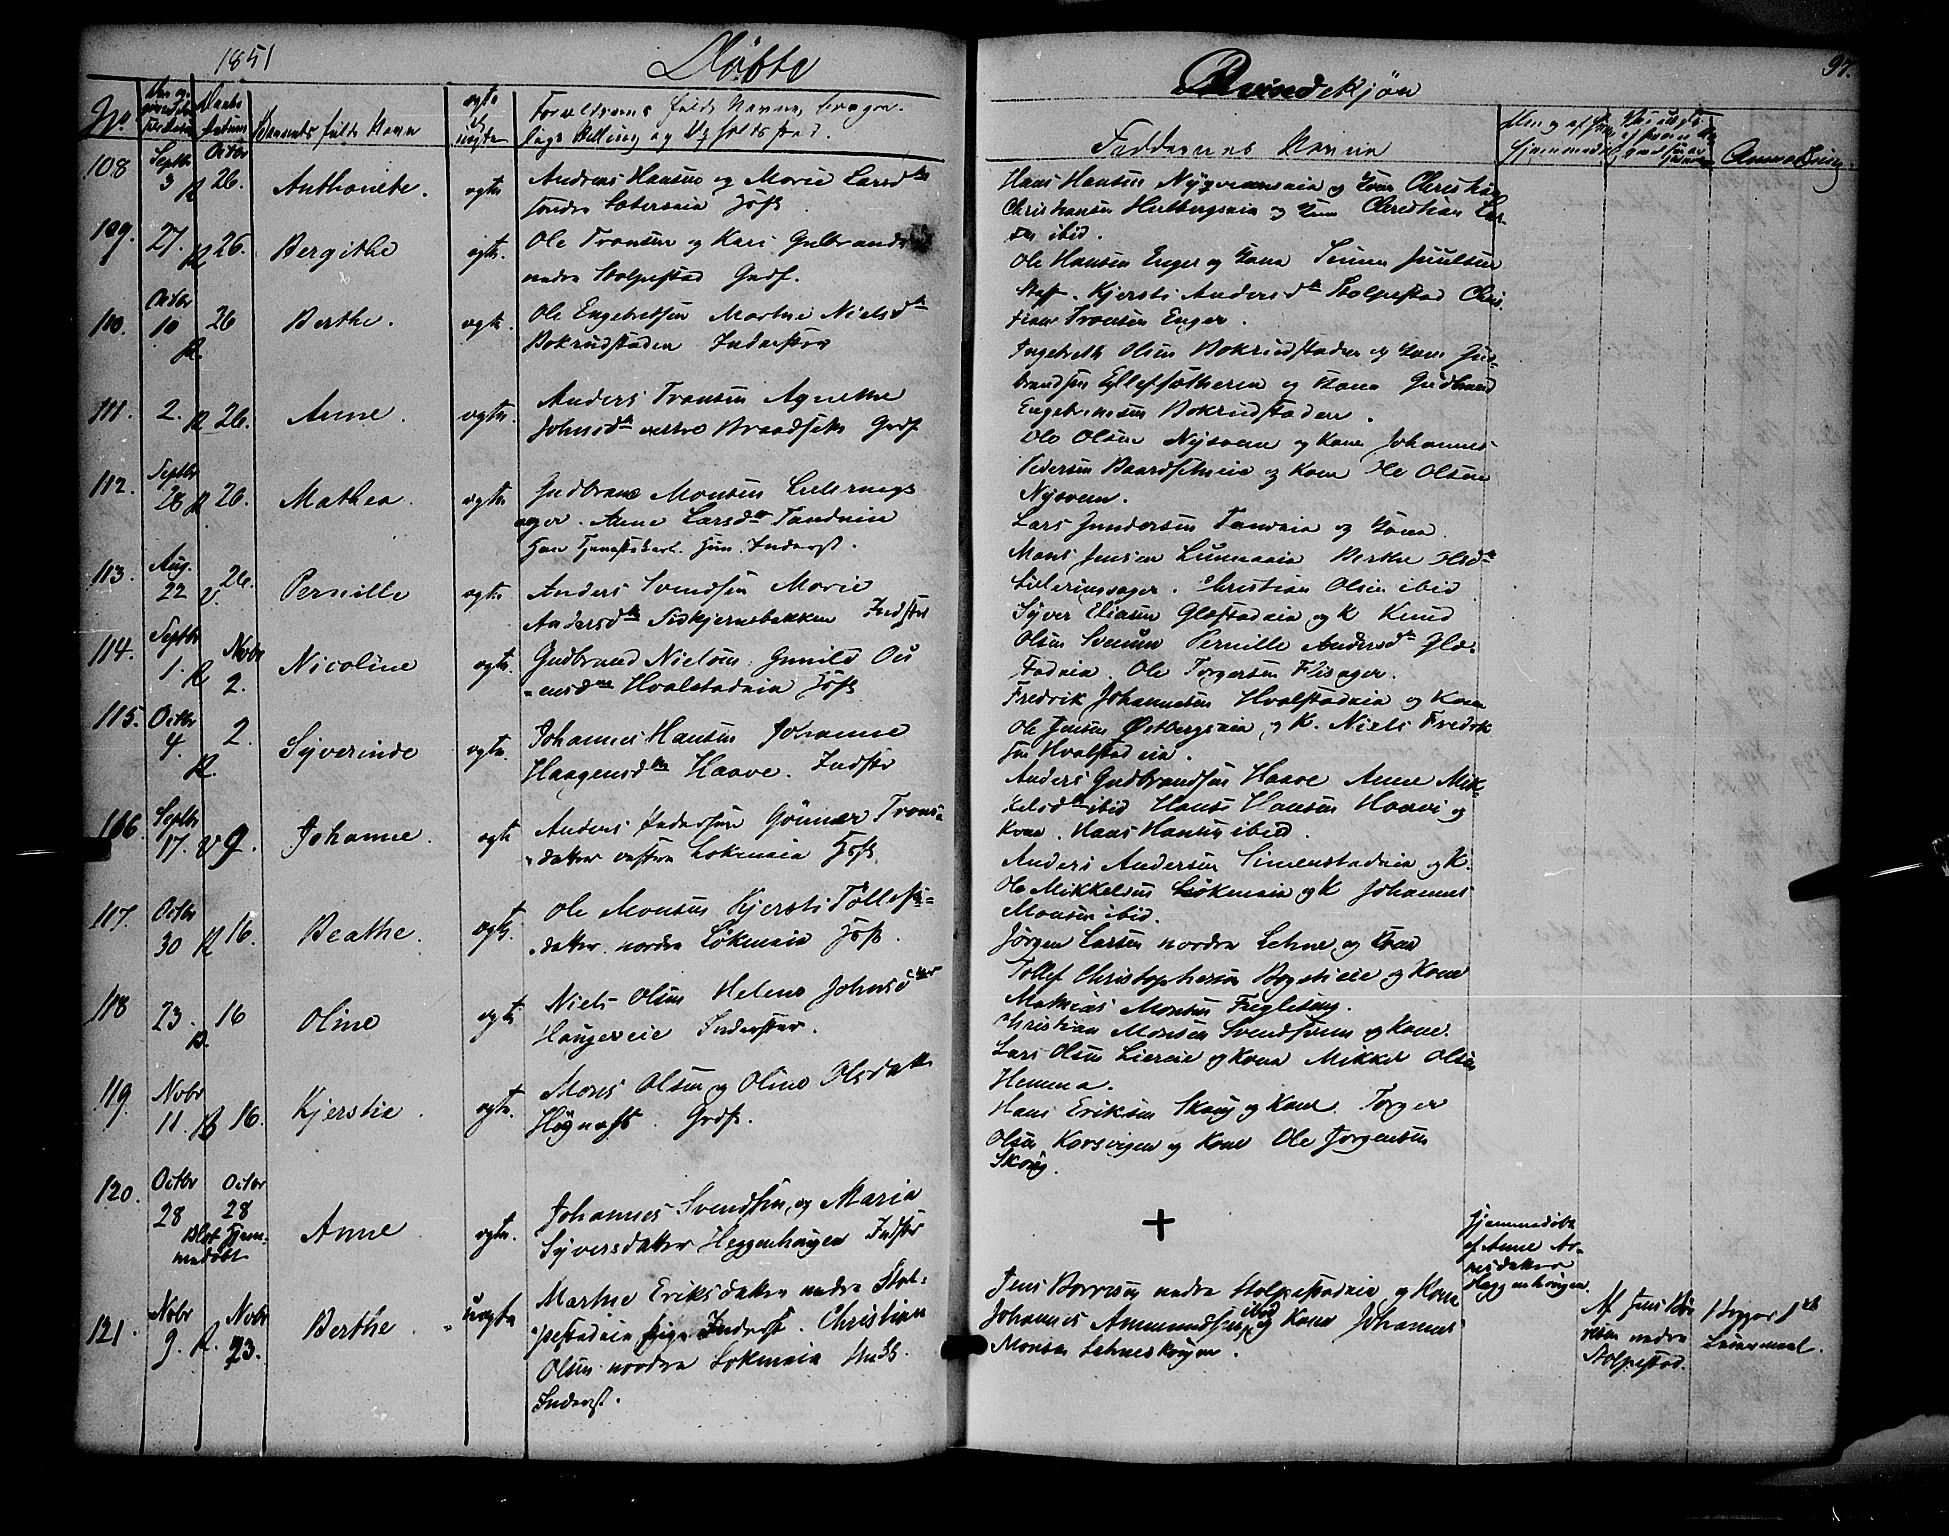 1851
Døbte
Qvindekjøn
97.
No
Barnets fulde Navn
ægte eller uægte
Forældrenes fulde Navne, borger-
lige Stilling og Opholdssted.
Faddernes Navne
Anmærkning.
108 Septbr 3 R Octbr 26. Anthonete. ægte Andreas Hansen og Marie Larsdtr
søndre Sæterseie Husf.
Hans Hansen Nygaardseie og Kone Christian
Christiansen Hulbergseie og Kone Christian Lar-
sen ibid.
109. 27. R 26. Bergithe ægte. Ole Tronsen og Kari Gulbrandsd
nedre Stolpestad Grdf.
Ole Hansen Enger og Kone Simen Juulsen
Staff. Kjersti Andersdtr Stolpestad Chris-
tian Tronsen Enger.
110. Octbr 10 R. 26 Berthe. ægte. Ole Engebretsen Marthe Nielsdtr
Bokrudstaden Inderster
Ingebreth Olsen Bokrudstaden og Kone Gul-
brandsen Ellefsætheren og Kone Gudbrand
Engebretsen Bokrudstaden.
111. 2. R 26. Anne. ægte. Anders Tronsen Agnethe
Johnsdtr vestre Baardseth Grdf.
Ole Olsen Nysveen og Kone Johannes
Pedersen Baardsetheie og Kone Ole Olsen
Nysveen.
112. Septbr 28 R 26. Mathea. ægte Gudbrand Monsen Lillerings
ager. Anne Larsdtr Tandeie
Han Tjenestekarl. Hun Inderst.
Lars Gundersen Tandeie og Kone.
Mons Jensen Lunneeie Berthe Olsdtr
Lilleringsager. Christian Olsen ibid
113. Aug. 22 V. 26. Pernille ægte. Anders Svendsen Marie
Andersdtr Tidskjernsbakken Indster
Syver Eliasen Glæstadeie og K Knud
Olsen Sveum Pernille Andersdtr Glæ-
stadeie Ole Torgersen Flisager.
114. Septbr 1. R Novbr 2. Nicoline ægte. Gudbrand Nielsen Gunild Ou
ensdtr Hvalstadeie Husf.
Fredrik Johannesen Hvalstadeie og Kone
Ole Jensen Østbergseie og K. Niels Fredrik
sen Hvalstadeie.
115. Octbr 4. R. 2. Syverinde ægte. Johannes Hansen Johanne
Haagensdtr Haave. Indstr
Anders Gudbrandsen Haave Anne Mik-
kelsdtr ibid Hans Hansen Haave og
Kone. Hans Hansen ibid.
116. Septbr 17. V 9. Johanne. ægte Anders Pedersen Gønner Trons-
datter vestre Løkeneie Husf.
Anders Andersen Simenstadeie og K.
Ole Mikkelsen Løkeneie og K Johannes
Monsen ibid.
117. Octbr 30 R 16. Beathe. ægte. Ole Monsen Kjersti Tollefs-
datter nordre Løkeneie Husf.
Jørgen Larsen nordre Lehne og Kone
Tollef Christophersen Bøgstieie og Kone
Mathias Monsen Fuglesang.
118 23. R. 16 Oline ægte Niels Olsen Helene Johnsdtter
Haugereie Inderster.
Christian Monsen Svendsrum og Kone.
Lars Olsen Liereie og Kone Mikkel Olsen
Hemma.
119 Novbr 11. R 16. Kjerstie. ægte. Mons Olsen og Oline Olsdatt
Høgnæst. Grdf.
Hans Eriksen Skoug og Kone. Torger
Olsen Korsvigen og Kone Ole Jørgensen
Skoug.
120. Octbr 28 Octbr 28 Blot Hjem-
medøbt Anne ægte. Johannes Svendsen og Maria
Syversdatter Heggenhougen Indstr
+
Hjemmedøbt
af Anne Ar-
nesdatter
Heggenhougen.
121. Novbr 9. R. Novbr 23. Berthe. uægte Marthe Eriksdatter nedre Stol-
pestadeie Pige Inderst. Christian
Olsen nordre Løkeneie Unkk.
Inderst.
Jens Borresen nedre Stolpestadeie og Kone
Johannes Ammundsen ibid og Kone Johannes
Monsen Lehneskougen.
Af Jens Bør-
resen nedre
Stolpestad.
Begges 1ste
Leiermaal.